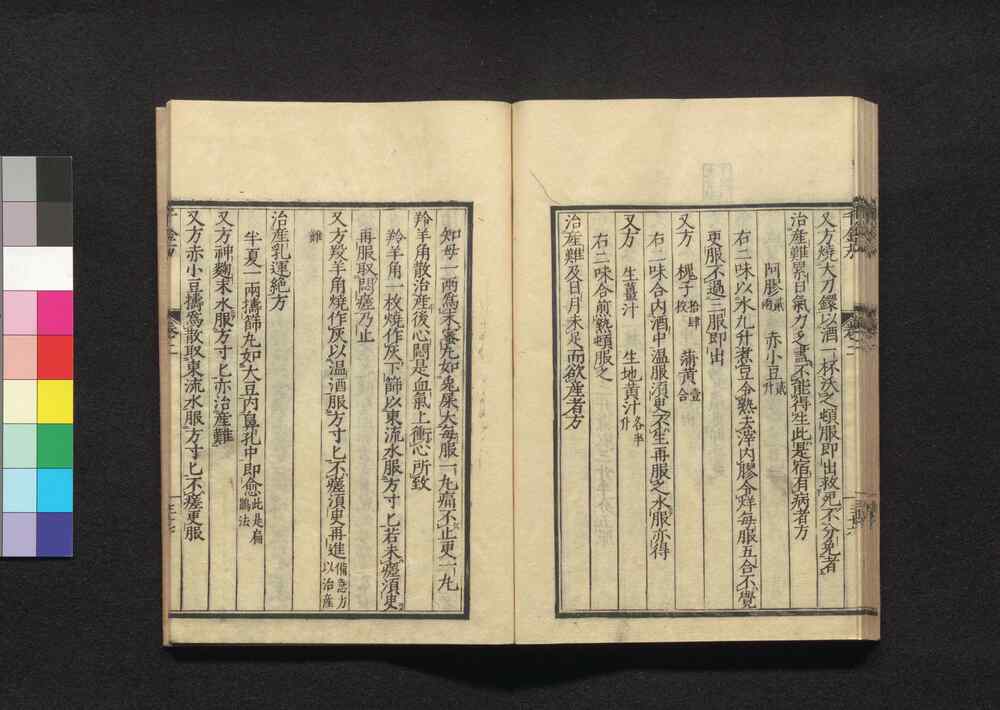 又方燒大刀鐶以酒一杯沃之頓服即出救死不分免者
治産難累日氣力乏盡不能得生此是宿有病者方
阿膠貳兩 赤小豆貳升
右二味以水九升煮豆令熟去滓内膠令烊每服五合不覺
更服不過三服即出
又方 槐子拾肆枚 蒲黄壹合
右二味合内酒中温服須臾不生再服之水服亦得
又方 生薑汁 生地黄汁各半升
右二味合煎熟頓服之
治産難及日月未足而欲産者方
知母一兩為末蜜丸如兎屎大每服一丸痛不止更一丸
羚羊角散治産後心悶是血氣上衝心所致
羚羊角一枚燒作灰下篩以東流水服方寸匕若未瘥須臾
再服取悶瘥乃止
又方羖羊角燒作灰以温酒服方寸匕不瘥須臾再進備急方以治産
難
治産乳運絶方
半夏一兩擣篩丸如大豆内鼻孔中即愈此是扁鵲法
又方神麴末水服方寸匕亦治産難
又方赤小豆擣為散取東流水服方寸匕不瘥更服